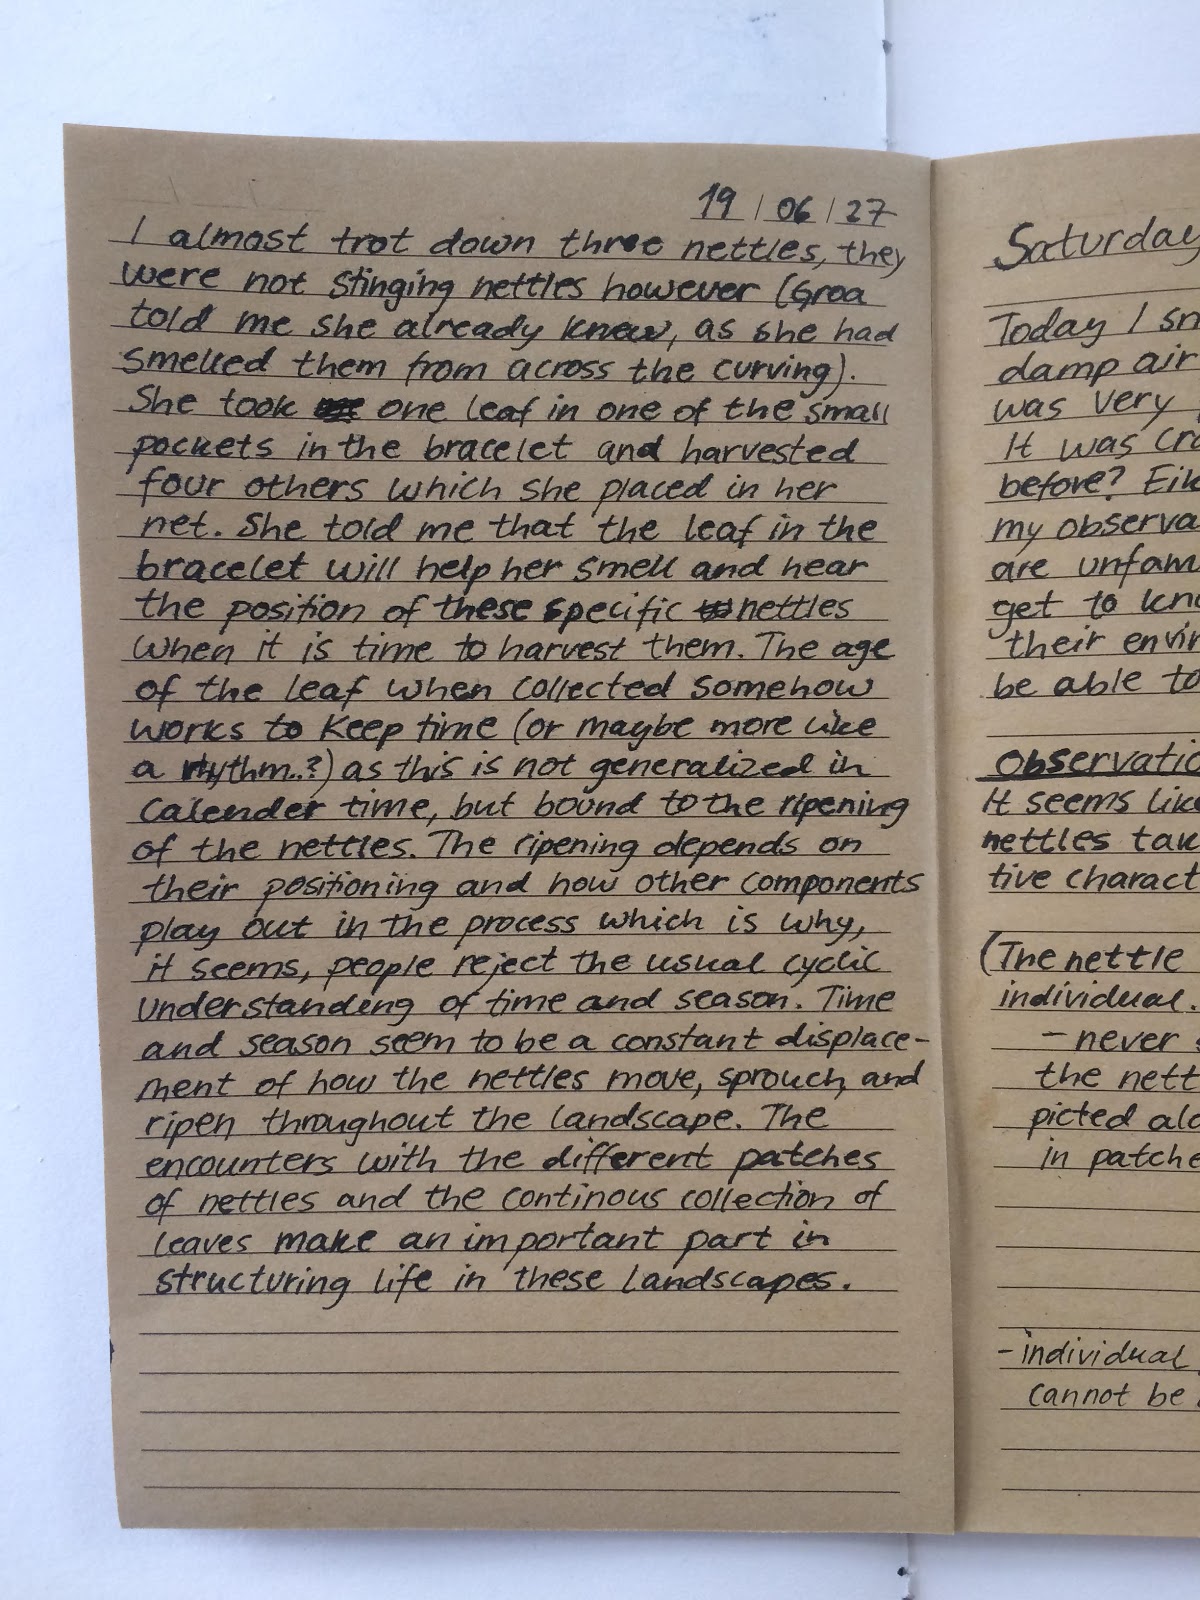 19 / 06 / 27
I almost trot down three nettles, they
were not stinging nettles however (Groa
told me she already knew, as she had
smelled them from across the curving).
She took one leaf in one of the small
pockets in the bracelet and harvested
four others which she placed in her
net. She told me that the leaf in the
bracelet will help her smell and hear
the position of these specific nettles
when it is time to harvest them. The age
of the leaf when collected somehow
works to keep time (or maybe more like
a rhythm..?) as this is not generalized in
calender time, but bound to the ripening
of the nettles. The ripening depends on
their positioning and how other components
play out in the process which is why,
it seems, people reject the usual cyclic
understanding of time and season. Time
and season seem to be a constant displace-
ment of how the nettles move, sprouch, and
ripen throughout the landscape. The
encounters with the different patches
of nettles and the continous collection of
leaves make an important part in
structuring life in these landscapes.
Saturday
Today I
damp air
was very
It was
before?
my
are
get to
their
be able to

It seems
nettles

(The nettle
individual.
- never
the

in
- individual
cannot be